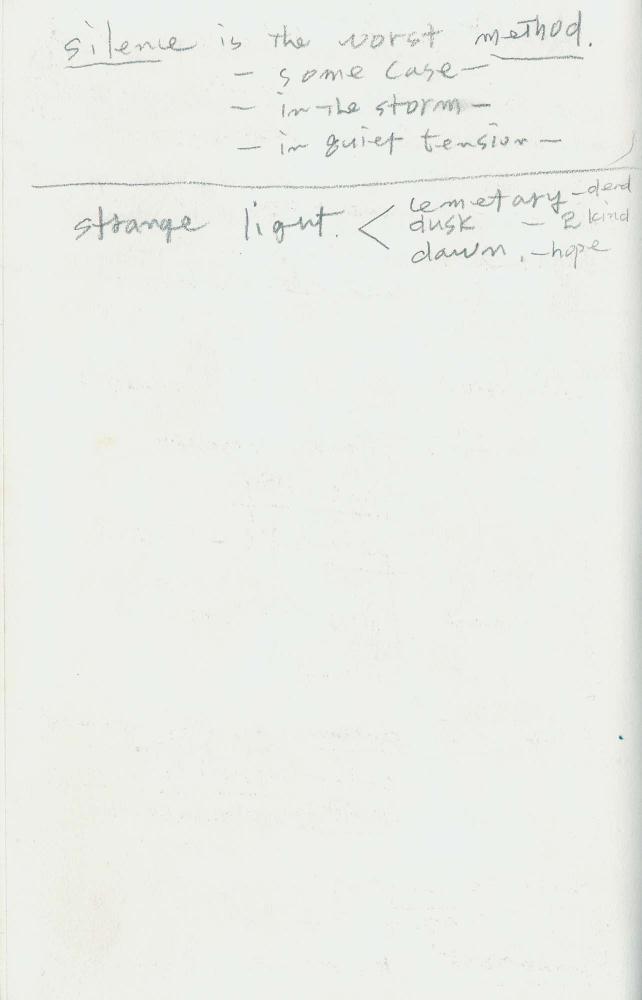 silence is the worst method.
- some case -
- in the storm -
- in quiet tension -
strange light. < cemetary - dead
dusk - 2 kind
dawn. - hope